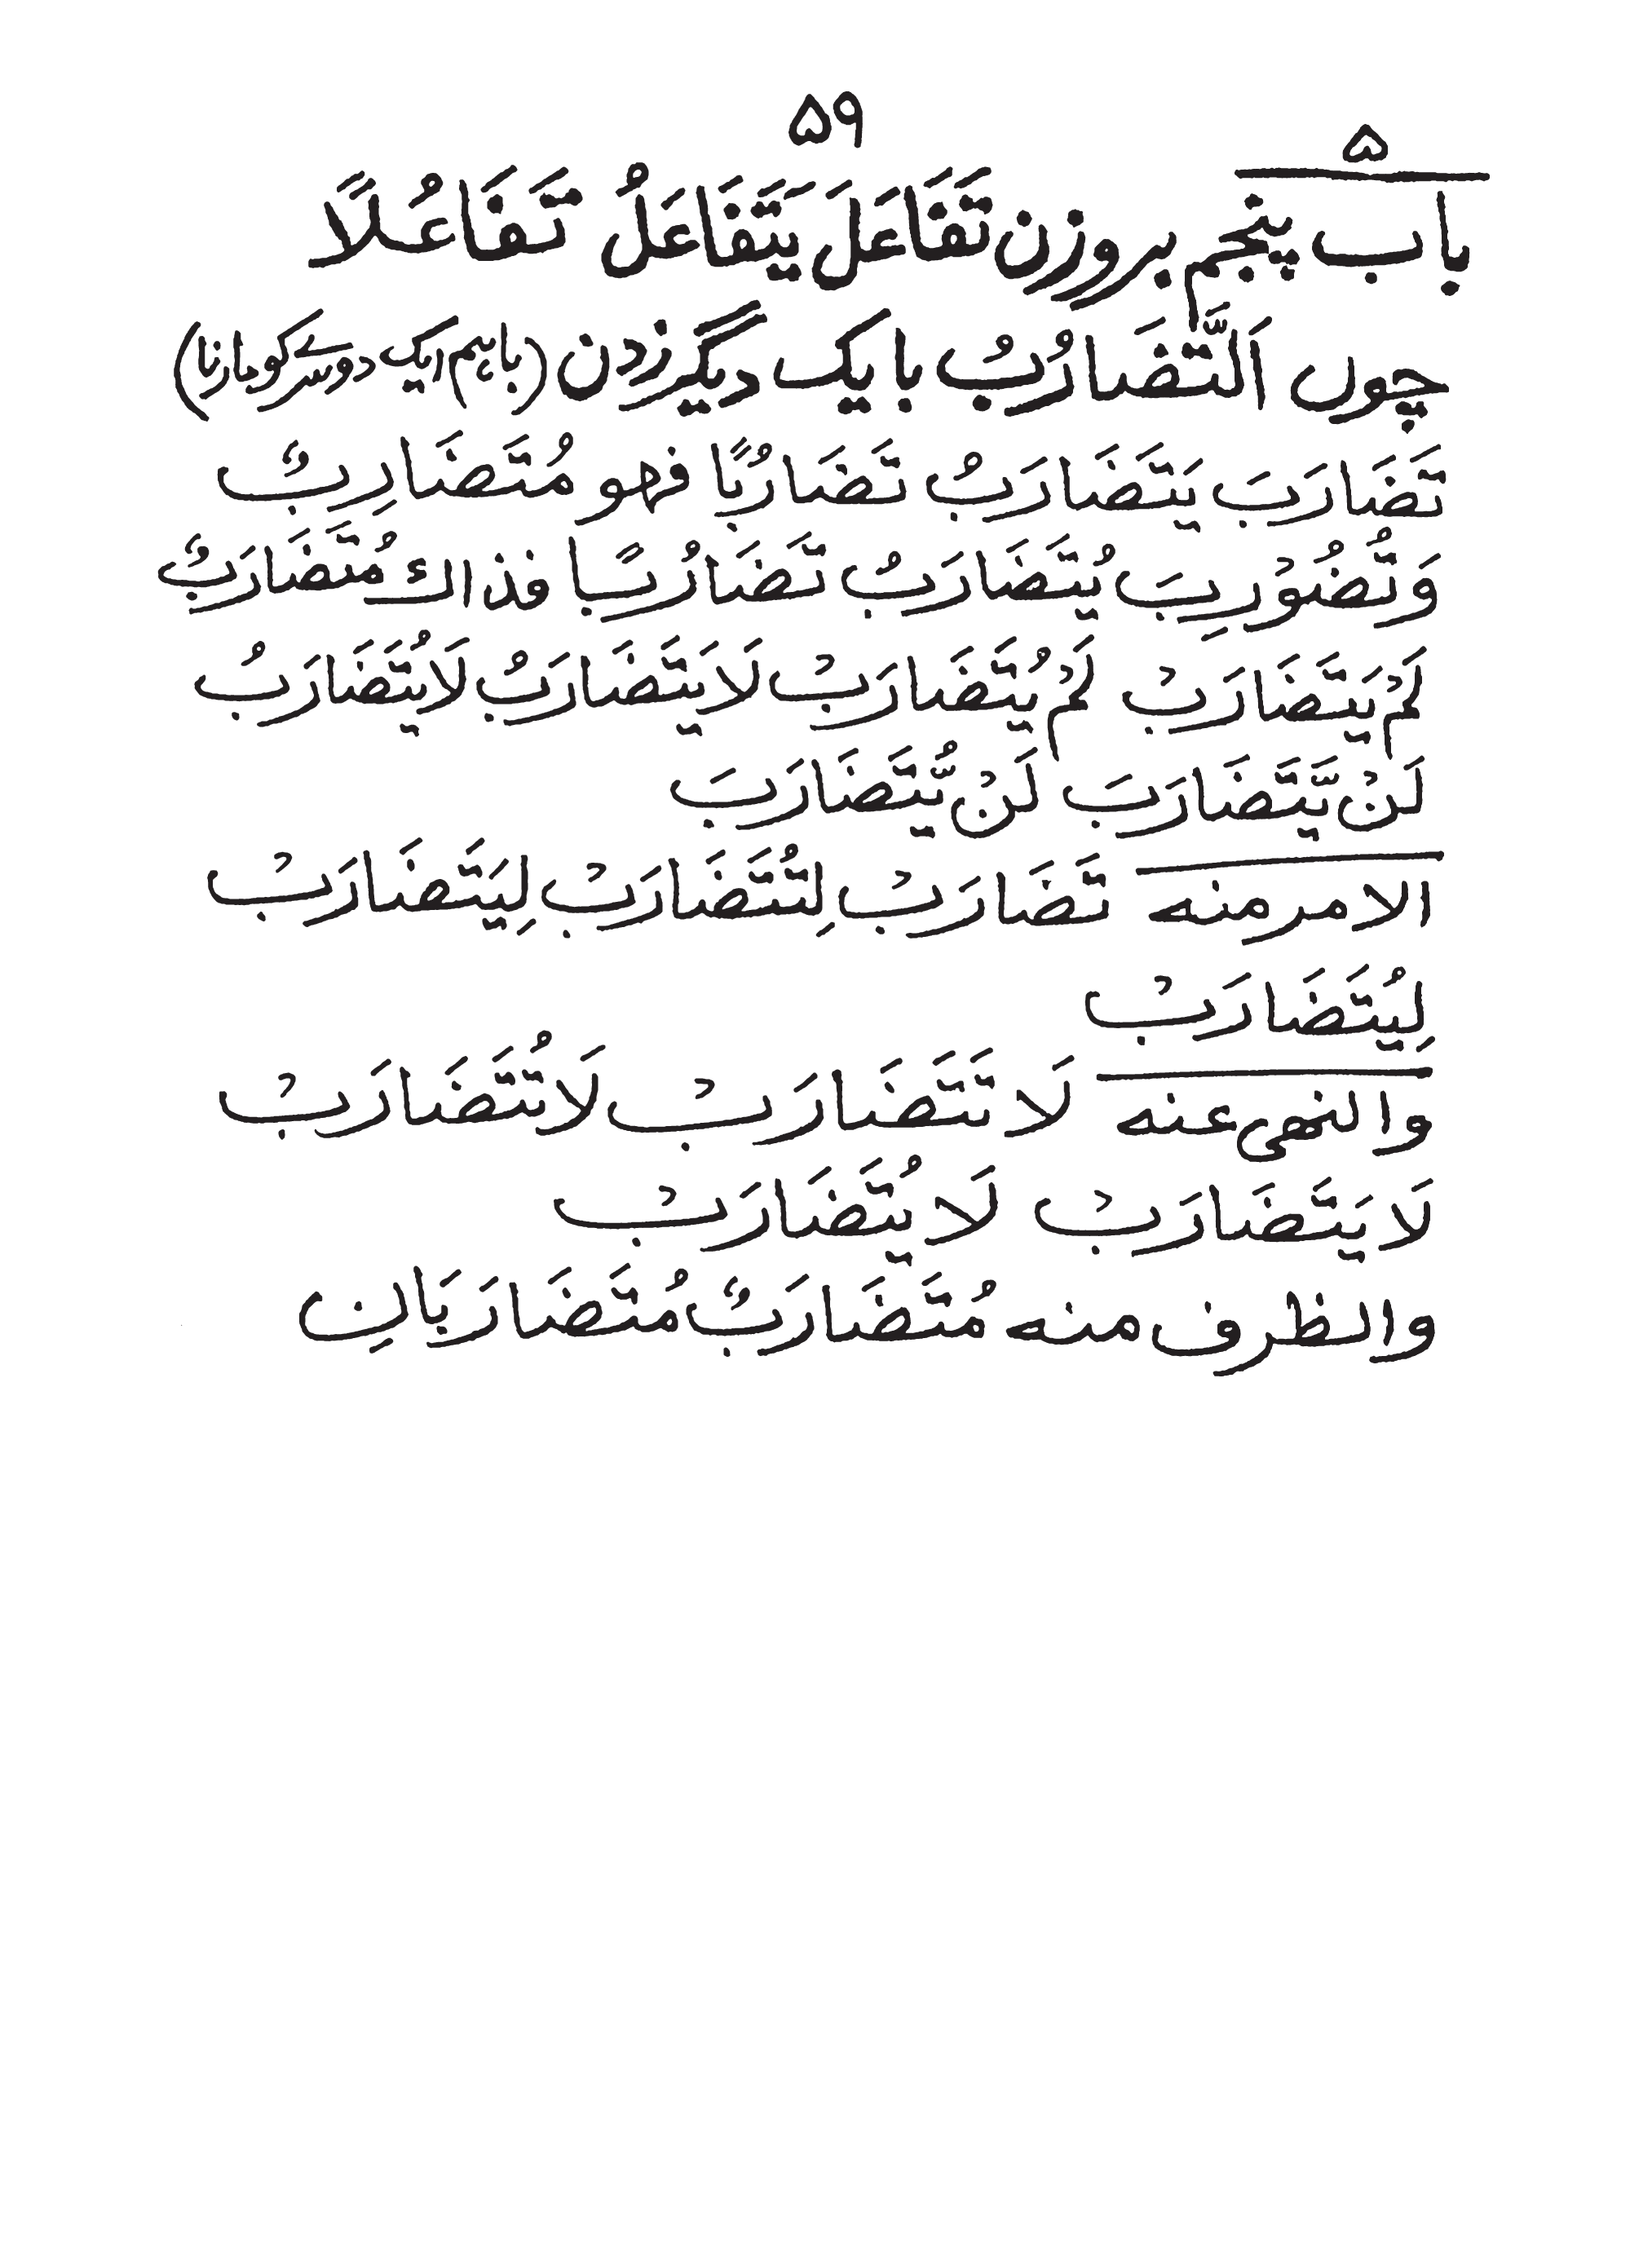 ۵۹
۵
باب پنجم بروزن تَفَاعَلَ يَتَفَاعَلُ تَفَاعُلًا
چوں اَلتَّضَارُبُ بایک دیگر زدن (باہم ایک دوسرے کو مارنا)
تَضَارَبَ يَتَضَارَبُ تَضَارُبًا فهو مُتَضَارِبٌ
وَتُضُوْرِبَ يُتَضَارَبُ تَضَارُبًا فذاك مُتَضَارَبٌ
لَمْ يَتَضَارَبْ لَمْ يُتَضَارَبْ لَا يَتَضَارَبُ لَا يُتَضَارَبُ
لَنْ يَّتَضَارَبَ لَنْ يُّتَضَارَبَ
الامر منه تَضَارَبْ لِتُتَضَارَبْ لِيَتَضَارَبْ
لِيُتَضَارَبْ
والنهى عنه لَا تَتَضَارَبْ لَا تُتَضَارَبْ
لَا يَتَضَارَبْ لَا يُتَضَارَبْ
والظرف منه مُتَضَارَبٌ مُتَضَارَبَانِ